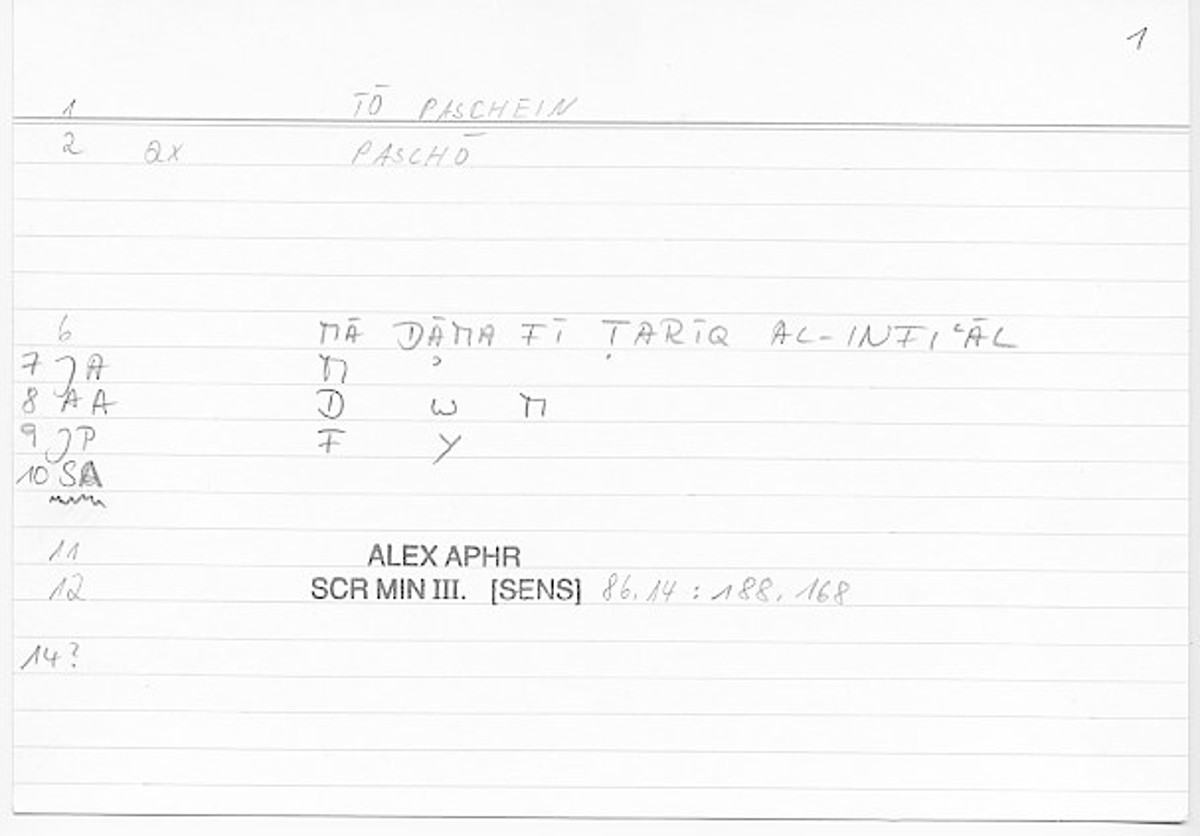 1
1 TŌ PASCHEIN
2 2X PASCHŌ
6 MĀ DĀMA FĪ ṬARĪQ AL-INFIʿĀL
7 JA M ʾ
8 AA D W M
9 JP F Y
10 SA
11 ALEX APHR
12 SCR MIN III. [SENS] 86.14 : 188.168
14?